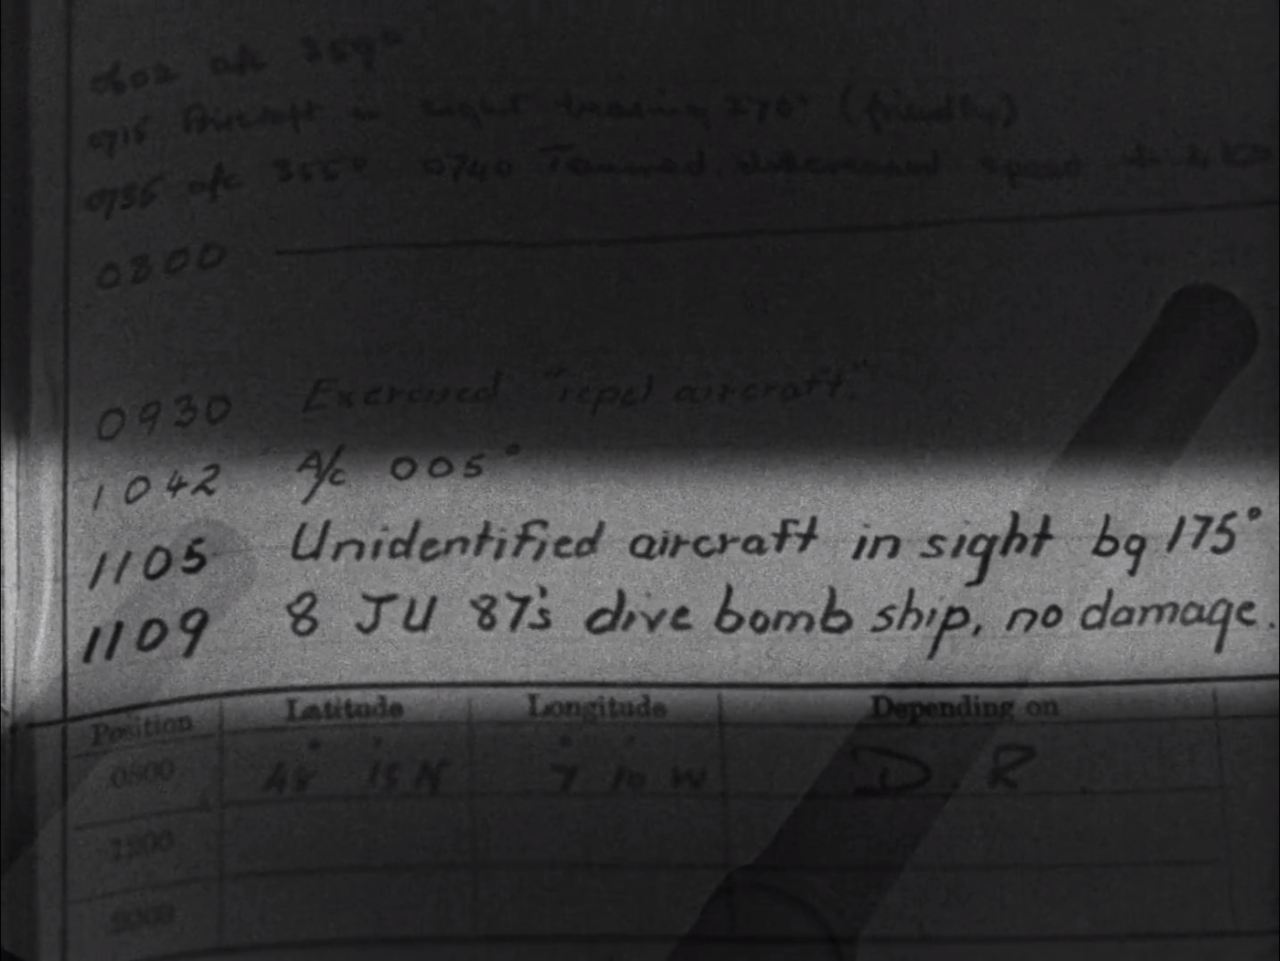 0602 a/c 359°
0715 Aircraft in sight bearing 270° (friendly)
0735 a/c 355° 0740 speed
0800
0930 Exercised "repel aircraft."
1042 A/c 005°
1105 Unidentified aircraft in sight bg 175°
1109 8 JU 87's dive bomb ship, no damage.
Position Latitude Longitude Depending on
0800 48° 15' N 7° 10' W D.R
1200
2000